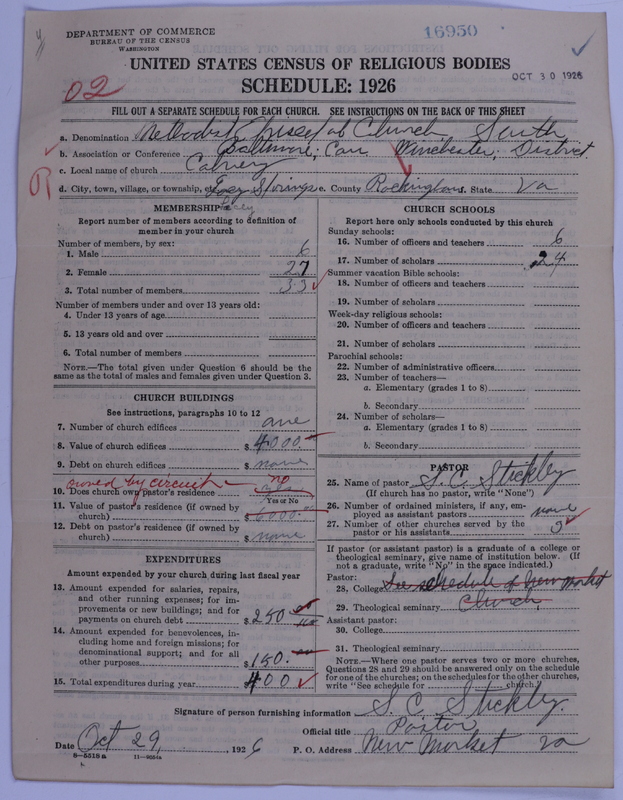 DEPARTMENT OF COMMERCE
BUREAU OF THE CENSUS
WASHINGTON
16950
UNITED STATES CENSUS OF RELIGIOUS BODIES
OCT 30 1926
SCHEDULE: 1926
02
FILL OUT A SEPARATE SCHEDULE FOR EACH CHURCH. SEE INSTRUCTIONS ON THE BACK OF THIS SHEET
a. Denomination Methodist Episcopal Church, South
b. Association or Conference Baltimore; Winchester, District
c. Local name of church Calvery
d. City, town, village, or township, Springs e. County Rockingham f. State Va
MEMBERSHIP
Report number of members according to definition of
member in your church
Number of members, by sex:
1. Male 6
2. Female 27
3. Total number of members 33
Number of members under and over 13 years old:
4. Under 13 years of age
5. 13 years old and over
6. Total number of members
NOTE.—The total given under Question 6 should be
same as the total of males and females given under Question 3.
CHURCH BUILDINGS
See instructions, paragraphs 10 to 12
7. Number of church edifices one
8. Value of church edifices $ 4000
9. Debt on church edifices $ none
owned by circuit no
10. Does church own pastor's residence
Yes or No
11. Value of pastor's residence (if owned by
church) $ 6000.
12. Debt on pastor's residence (if owned by
church) $ none
EXPENDITURES
Amount expended by your church during last fiscal year
13. Amount expended for salaries, repairs,
and other running expenses; for im-
provements or new buildings; and for
payments on church debt $ 250
14. Amount expended for benevolences, in-
cluding home and foreign missions; for
denominational support; and for all
other purposes $ 150.
15. Total expenditures during year $ 400
CHURCH SCHOOLS
Report here only schools conducted by this church
Sunday schools:
16. Number of officers and teachers 6
17. Number of scholars 24
Summer vacation Bible schools:
18. Number of officers and teachers
19. Number of scholars
Week-day religious schools:
20. Number of officers and teachers
21. Number of scholars
Parochial schools:
22. Number of administrative officers
23. Number of teachers—
a. Elementary (grades 1 to 8)
b. Secondary
24. Number of scholars—
a. Elementary (grades 1 to 8)
b. Secondary
PASTOR
25. Name of pastor S. C. Stickley
(If church has no pastor, write "None")
26. Number of ordained ministers, if any, em-
ployed as assistant pastors none
27. Number of other churches served by the
pastor or his assistants 3
If pastor (or assistant pastor) is a graduate of a college or
theological seminary, give name of institution below. (If
not a graduate, write "No" in the space indicated.)
Pastor:
28. College See schedule of New Market
29. Theological seminary Church,
Assistant pastor:
30. College
31. Theological seminary
NOTE.—Where one pastor serves two or more churches,
Questions 28 and 29 should be answered only on the schedule
for one of the churches; on the schedules for the other churches,
write "See schedule for church."
Signature of person furnishing information S. C. Stickley.
Official title Pastor
Date Oct 29, 1926 P. O. Address New Market Va
8—5518 a 11—9054a